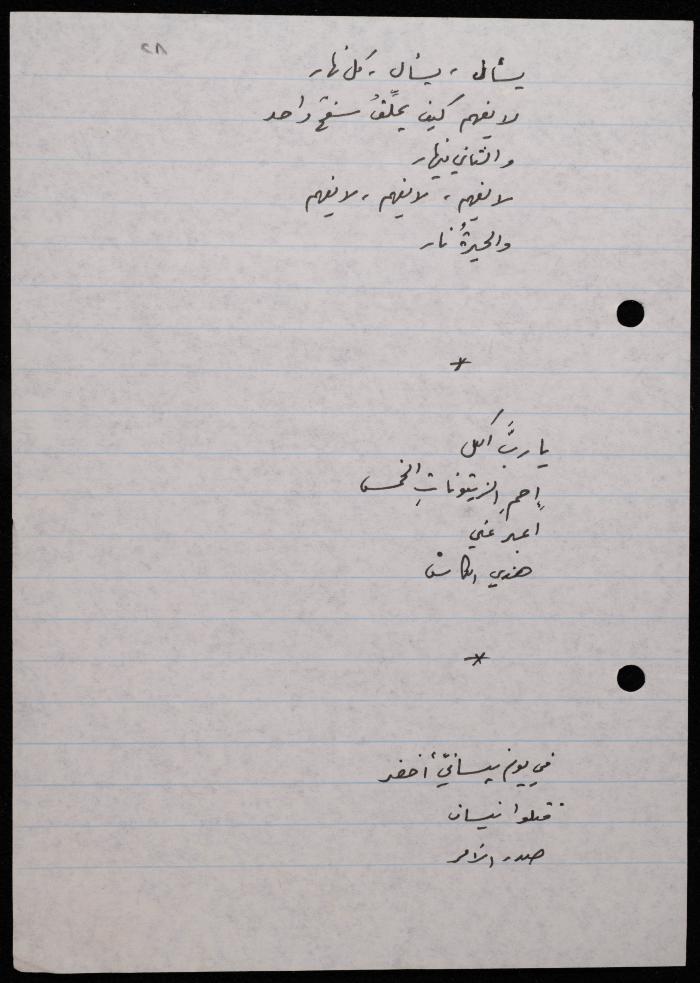 ٢٨
يسأل ، يسأل ، كل نهار
لا يفهم كيف يحلِّقُ سفح واحد
والثاني ينهار
لا يفهم ، لا يفهم ، لا يفهم
والحيرةُ نار
*
يا ربَّ الكل
إِحمِ الزيتوناتِ الخمس
أعبر عني
هذي الكاس
*
في يوم نيسانيّ أخضر
قتلوا نيسان
صدر الأمر